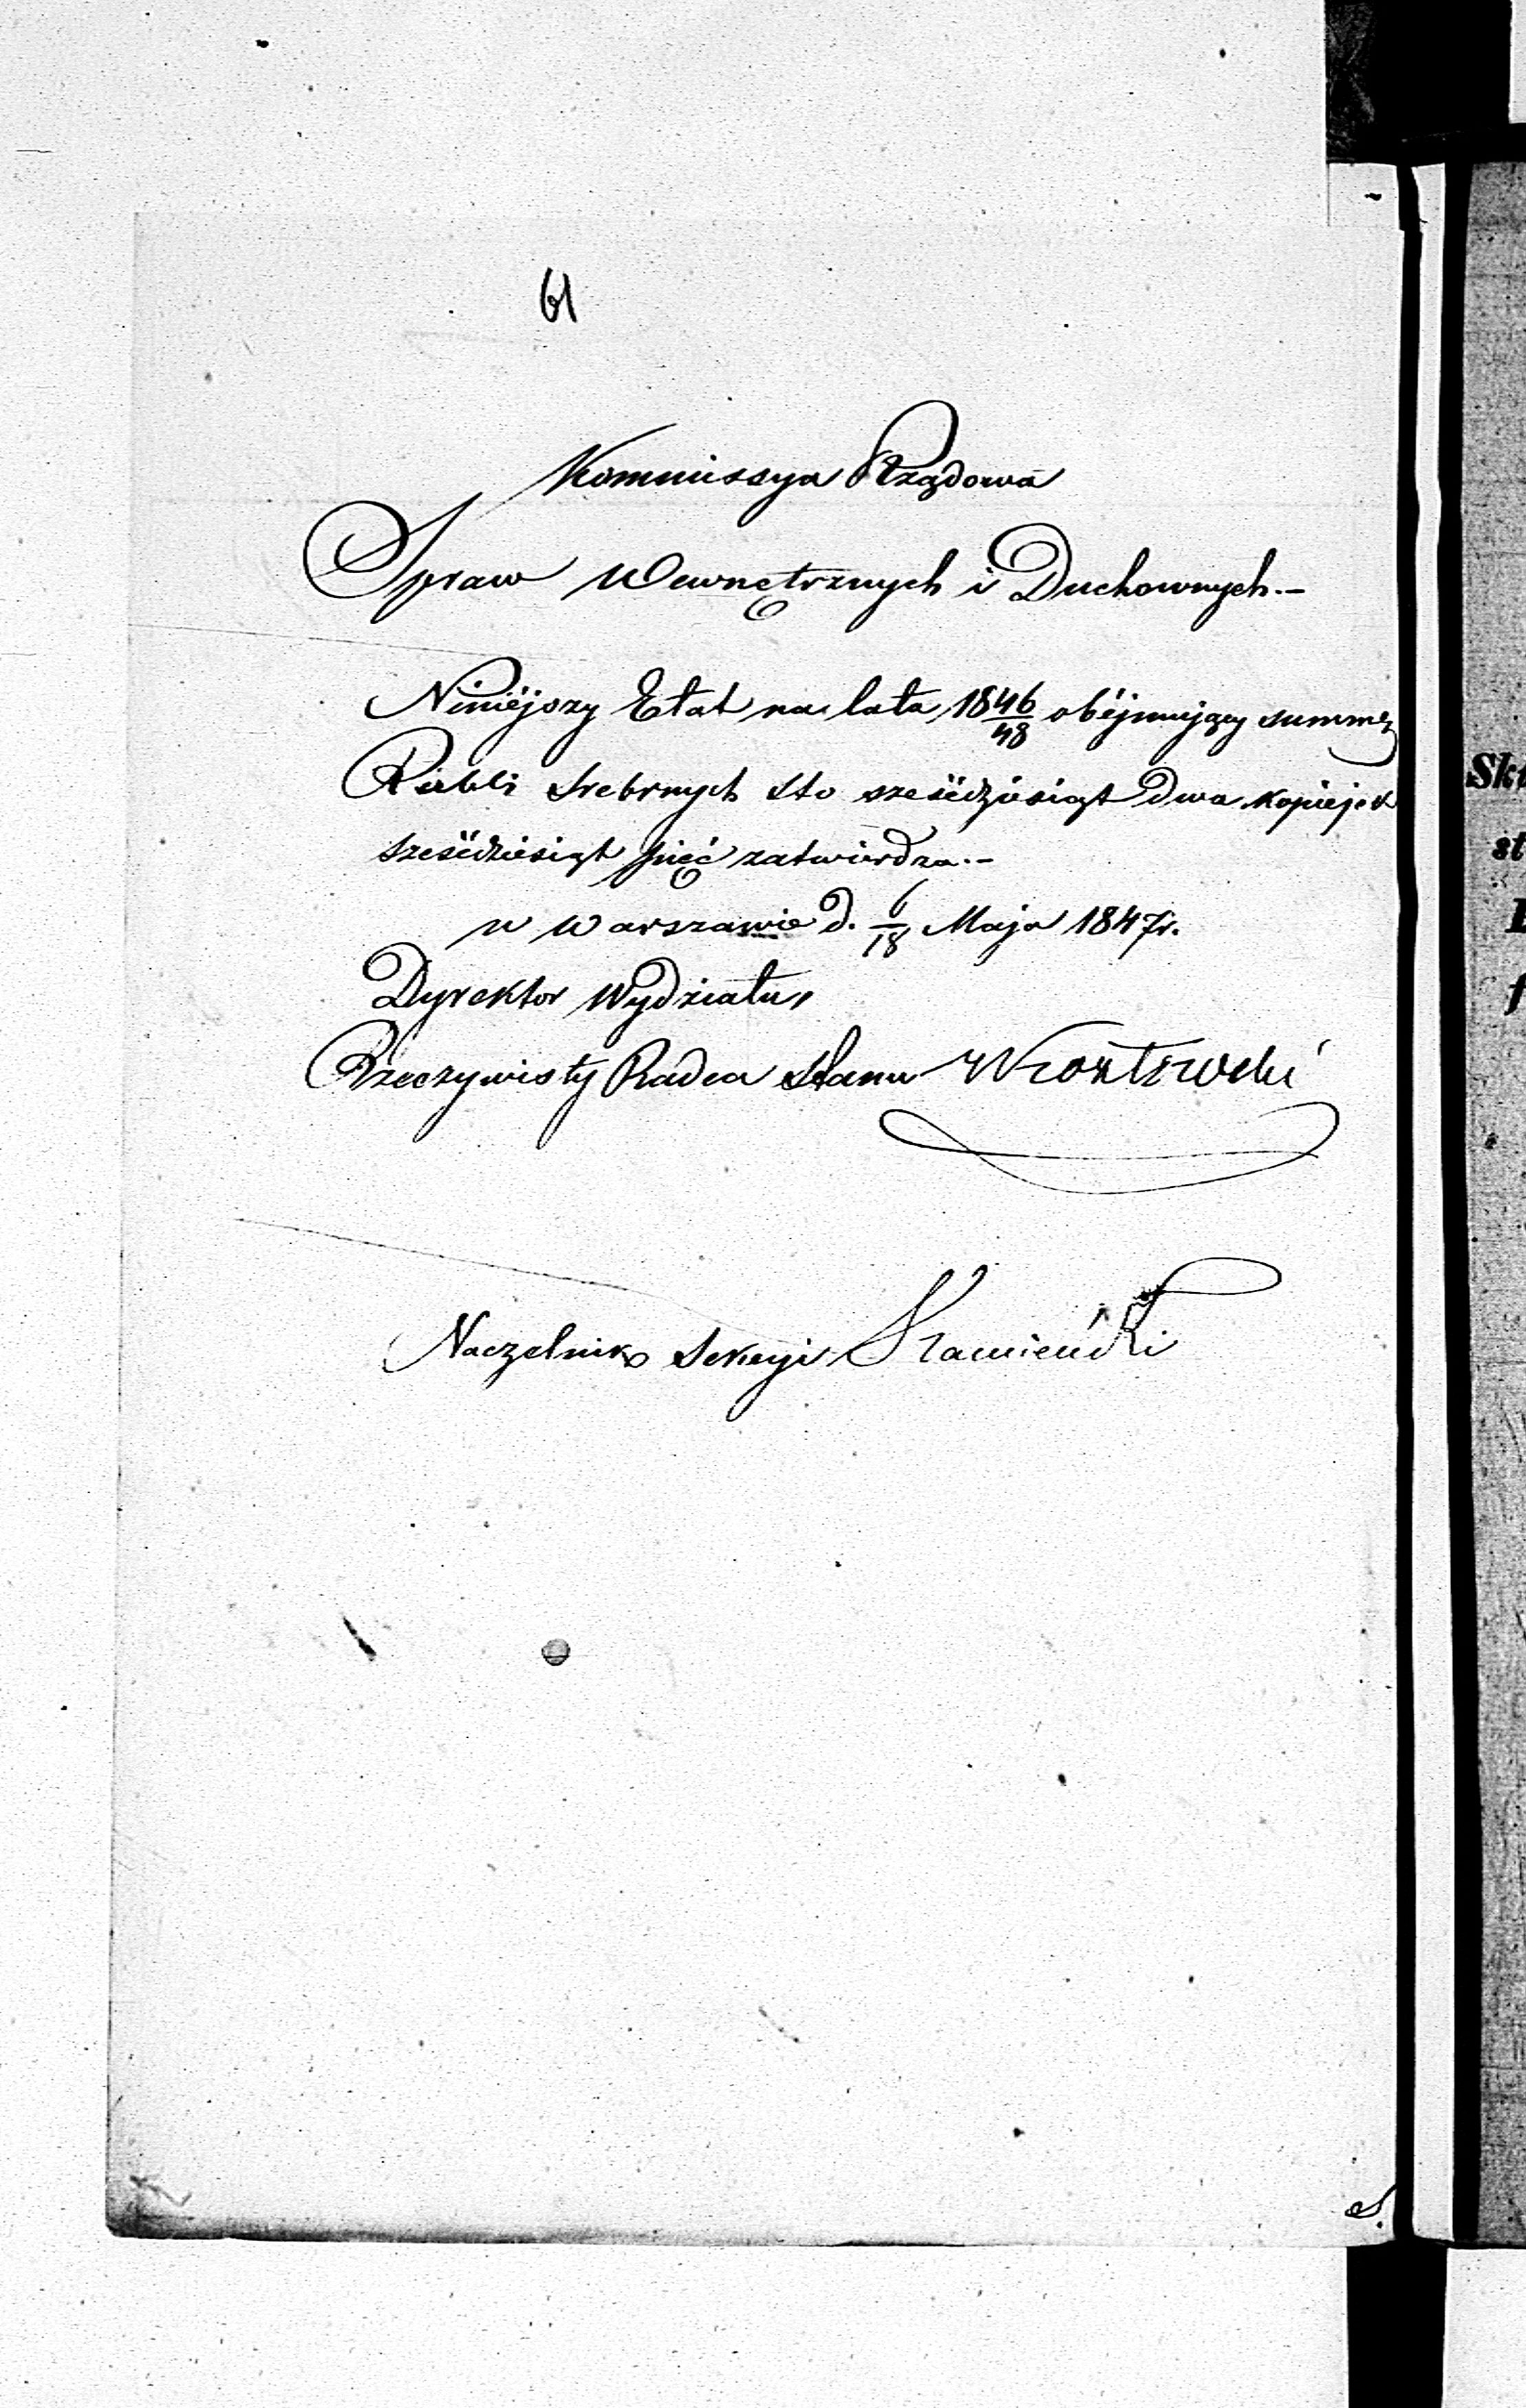 61
Kommissya Rządowa
Spraw Wewnętrznych i Duchownych.-
Niniéjszy Etat na lata 1846/48 obéjmujący summę
Rubli Srebrnych Sto sześćdziesiąt dwa kopiejek
sześćdziesiąt pięć zatwierdza.-
w Warszawie d. 6/18 Maja 1847r.
Dyrektor Wydziału,
Rzeczywisty Radca Stanu
Naczelnik Sekcyi Kamieński
Sk
st
S.